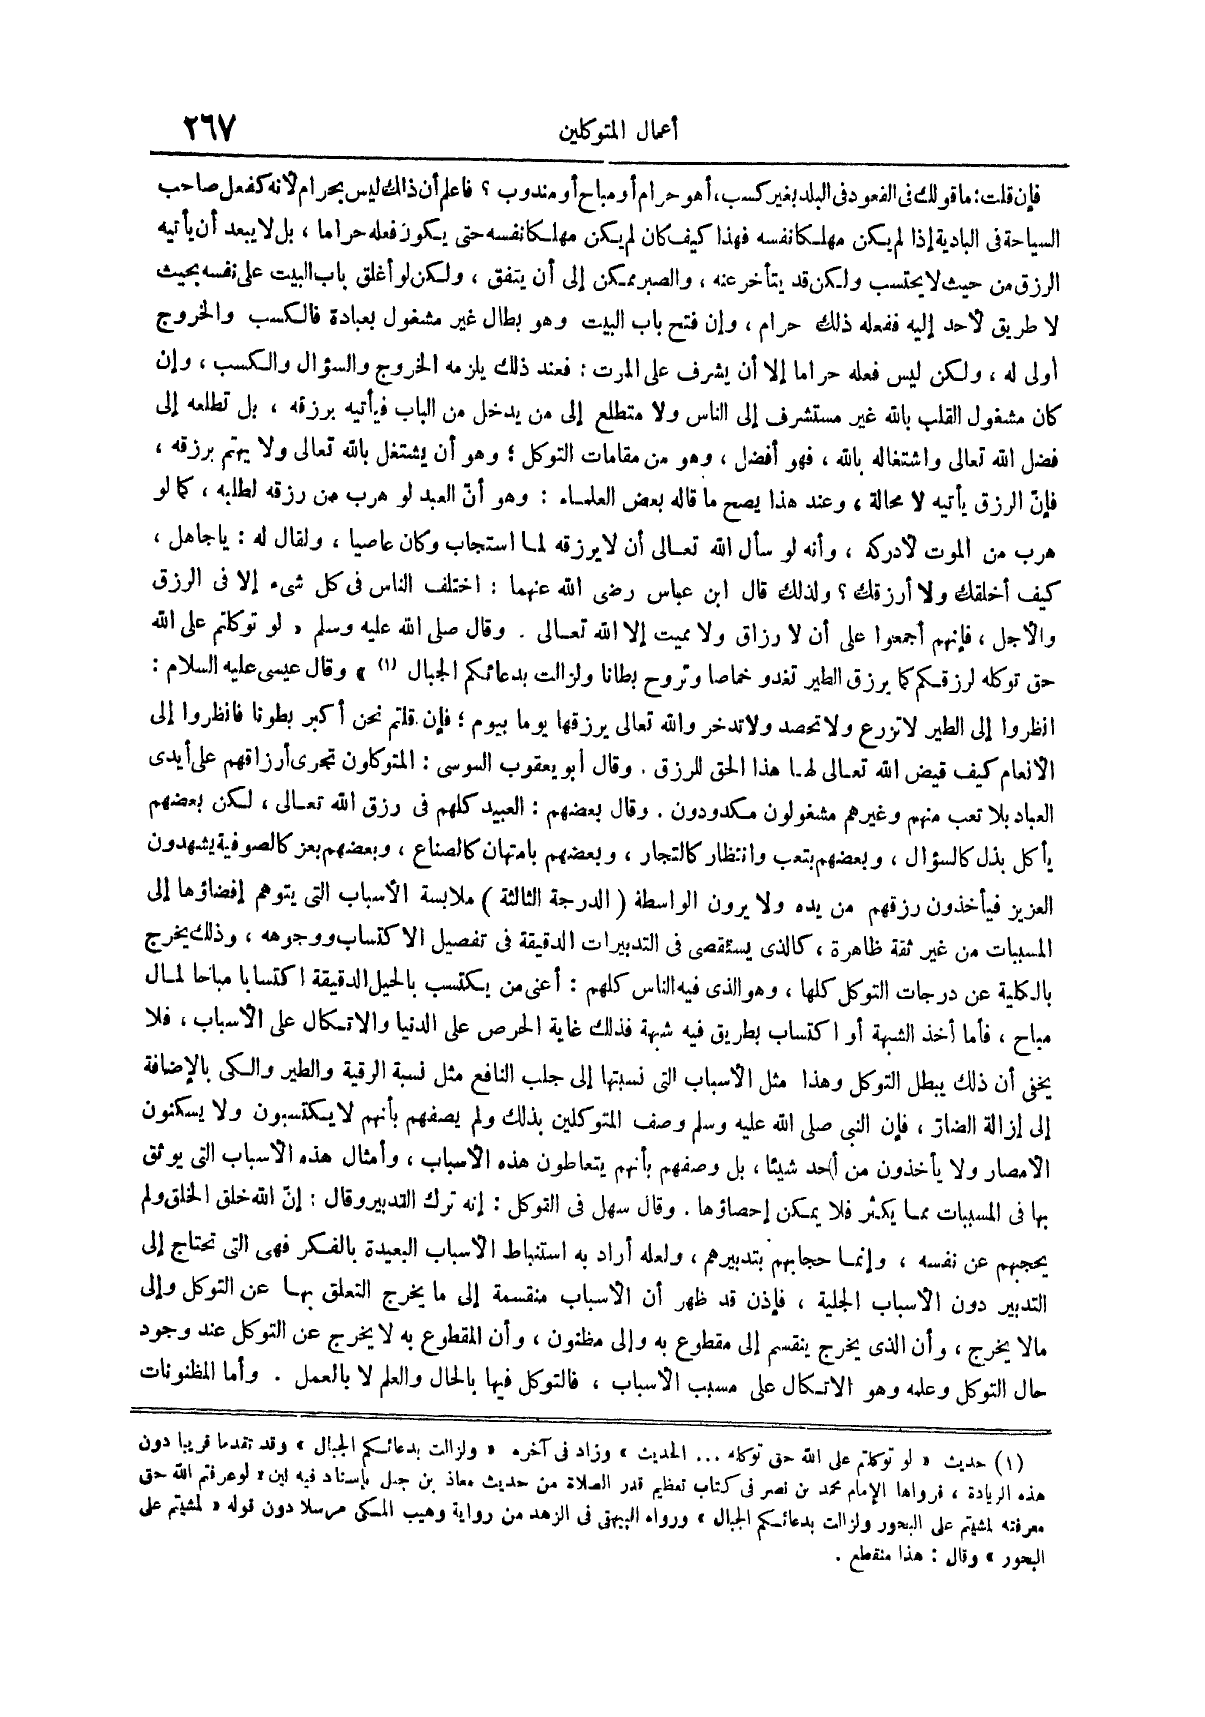 أعمال المتوكلين
٢٦٧
فإن قلت: ما قولك فى القعود فى البلد بغير كسب، أهو حرام أو مباح أو مندوب ؟ فاعلم أن ذلك ليس بحرام لأنه كفعل صاحب
السياحة فى البادية إذا لم يكن مهلكا نفسه فهذا كيف كان لم يكن مهلكا نفسه حتى يكون فعله حراما ، بل لا يبعد أن يأتيه
الرزق من حيث لا يحتسب ولكن قد يتأخر عنه ، والصبر ممكن إلى أن يتفق ، ولكن لو أغلق باب البيت على نفسه بحيث
لا طريق لأحد إليه ففعله ذلك حرام ، وإن فتح باب البيت وهو بطال غير مشغول بعبادة فالكسب والخروج
أولى له ، ولكن ليس فعله حراما إلا أن يشرف على المرت : فعند ذلك يلزمه الخروج والسؤال والكسب ، وإن
كان مشغول القلب بالله غير مستشرف إلى الناس ولا متطلع إلى من يدخل من الباب فيأتيه برزقه ، بل تطلعه إلى
فضل الله تعالى واشتغاله بالله ، فهو أفضل ، وهو من مقامات التوكل ؛ وهو أن يشتغل بالله تعالى ولا يهتم برزقه ،
فإنّ الرزق يأتيه لا محالة ، وعند هذا يصح ما قاله بعض العلماء : وهو أنّ العبد لو هرب من رزقه لطلبه ، كما لو
هرب من الموت لأدركه ، وأنه لو سأل الله تعالى أن لا يرزقه لما استجاب وكان عاصيا ، ولقال له : يا جاهل ،
كيف أخلقك ولا أرزقك ؟ ولذلك قال ابن عباس رضى الله عنهما : اختلف الناس فى كل شىء إلا فى الرزق
والأجل ، فإنهم أجمعوا على أن لا رزاق ولا مميت إلا الله تعالى . وقال صلى الله عليه وسلم « لو توكلتم على الله
حق توكله لرزقكم كما يرزق الطير تغدو خماصا وتروح بطانا ولزالت بدعائكم الجبال (١) » وقال عيسى عليه السلام :
انظروا إلى الطير لا تزرع ولا تحصد ولا تدخر والله تعالى يرزقها يوما بيوم ؛ فإن قلتم نحن أكبر بطونا فانظروا إلى
الأنعام كيف قيض الله تعالى لها هذا الحق للرزق . وقال أبو يعقوب السوسى : المتوكلون تجرى أرزاقهم على أيدى
العباد بلا تعب منهم وغيرهم مشغولون مكدودون . وقال بعضهم : العبيد كلهم فى رزق الله تعالى ، لكن بعضهم
يأكل بذل كالسؤال ، وبعضهم بتعب وانتظار كالتجار ، وبعضهم بامتهان كالصناع ، وبعضهم بعز كالصوفية يشهدون
العزيز فيأخذون رزقهم من يده ولا يرون الواسطة ( الدرجة الثالثة ) ملابسة الأسباب التى يتوهم إفضاؤها إلى
المسببات من غير ثقة ظاهرة ، كالذى يستقصى فى التدبيرات الدقيقة فى تفصيل الاكتساب ووجوهه ، وذلك يخرج
بالكلية عن درجات التوكل كلها ، وهو الذى فيه الناس كلهم : أعنى من يكتسب بالحيل الدقيقة اكتسابا مباحا لمال
مباح ، فأما أخذ الشبهة أو اكتساب بطريق فيه شبهة فذلك غاية الحرص على الدنيا والاتكال على الأسباب ، فلا
يخفى أن ذلك يبطل التوكل وهذا مثل الأسباب التى نسبتها إلى جلب النافع مثل نسبة الرقية والطير والكى بالإضافة
إلى إزالة الضارّ ، فإن النبى صلى الله عليه وسلم وصف المتوكلين بذلك ولم يصفهم بأنهم لا يكتسبون ولا يسكنون
الأمصار ولا يأخذون من أحد شيئا ، بل وصفهم بأنهم يتعاطون هذه الأسباب ، وأمثال هذه الأسباب التى يوثق
بها فى المسببات مما يكثر فلا يمكن إحصاؤها . وقال سهل فى التوكل : إنه ترك التدبير وقال : إنّ الله خلق الخلق ولم
يحجبهم عن نفسه ، وإنما حجابهم بتدبيرهم ، ولعله أراد به استنباط الأسباب البعيدة بالفكر فهى التى تحتاج إلى
التدبير دون الأسباب الجلية ، فإذن قد ظهر أن الأسباب منقسمة إلى ما يخرج التعلق بها عن التوكل وإلى
مالا يخرج ، وأن الذى يخرج ينقسم إلى مقطوع به وإلى مظنون ، وأن المقطوع به لا يخرج عن التوكل عند وجود
حال التوكل وعلمه وهو الاتكال على مسبب الأسباب ، فالتوكل فيها بالحال والعلم لا بالعمل . وأما المظنونات
(١) حديث « لو توكلتم على الله حق توكله ... الحديث » وزاد فى آخره « ولزالت بدعائكم الجبال » وقد تقدما قريبا دون
هذه الزيادة ، فرواها الإمام محمد بن نصر فى كتاب تعظيم قدر الصلاة من حديث معاذ بن جبل بإسناد فيه لين « لو عرفتم الله حق
معرفته لمشيتم على البحور ولزالت بدعائكم الجبال » ورواه البيهقى فى الزهد من رواية وهيب المكى مرسلا دون قوله « لمشيتم على
البحور » وقال : هذا منقطع .